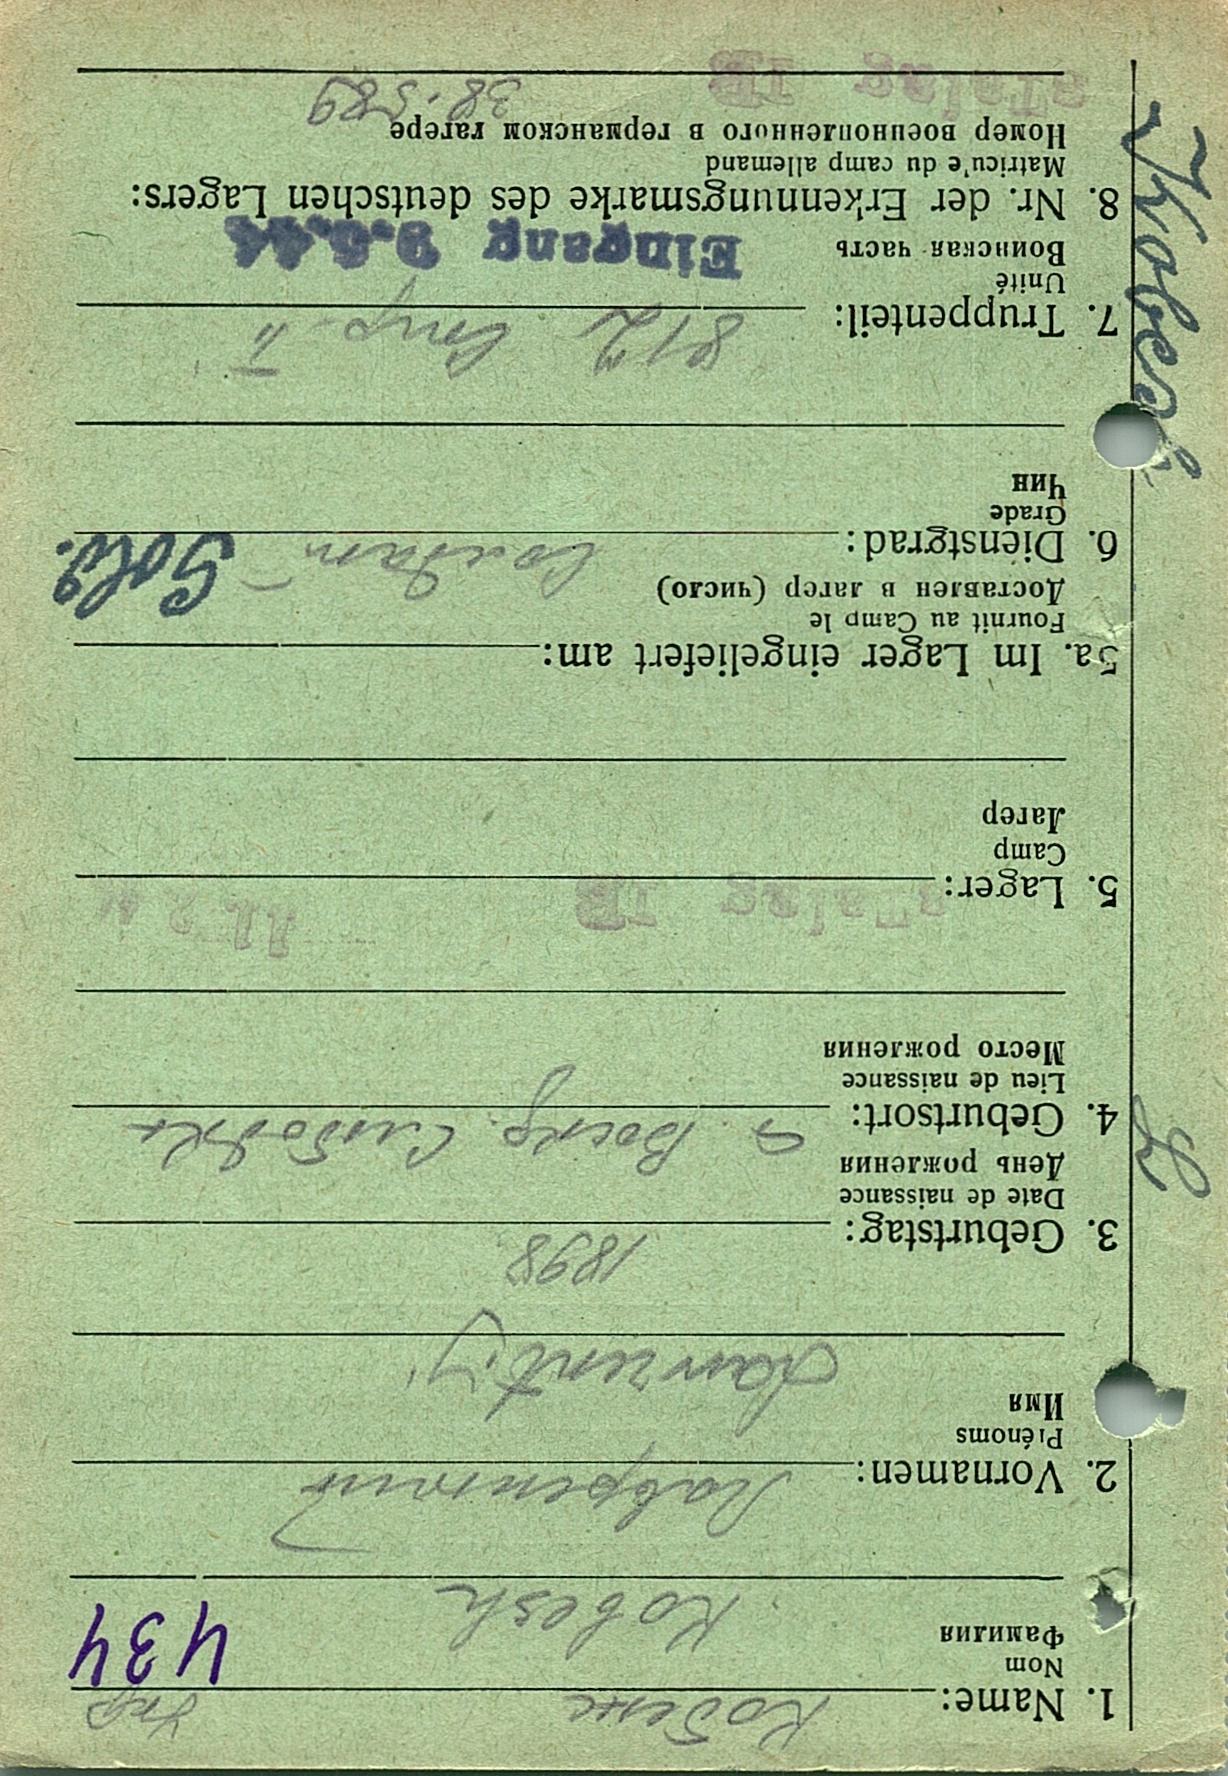 1. Name: Кобеж Укр
Nom
Фамилия
434
Kobesh
2. Vornamen: Лаврентий
Prénoms
Имя
Lavrentij
3. Geburtstag: 1898
Date de naissance
День рождения
4. Geburtsort:
Lieu de naissance
Место рождения
5. Lager: Stalag IB
Camp
Лагер
5a. Im Lager eingeliefert am:
Fournit au Camp le
Доставлен в лагер (число)
Sold.
6. Dienstgrad: Солдат
Grade
Чин
7. Truppenteil: 812
Unité
Воинская часть
Eingang 9.6.44
8. Nr. der Erkennungsmarke des deutschen Lagers:
Matricu'e du camp allemand
Номер военнопленного в германском лагере
38.589
Stalag IB
Kobesh
L